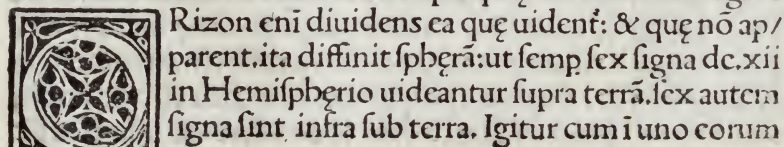 ORizon eni diuidens ea quę uident᷑: & quę nō ap/
parent.ita diffinit ſphęrā:ut ſemp ſex ſigna de.xii
in Hemiſphęrio uideantur ſupra terrā.ſex autem
ſigna ſint infra ſub terra. Igitur cum ī uno eorum